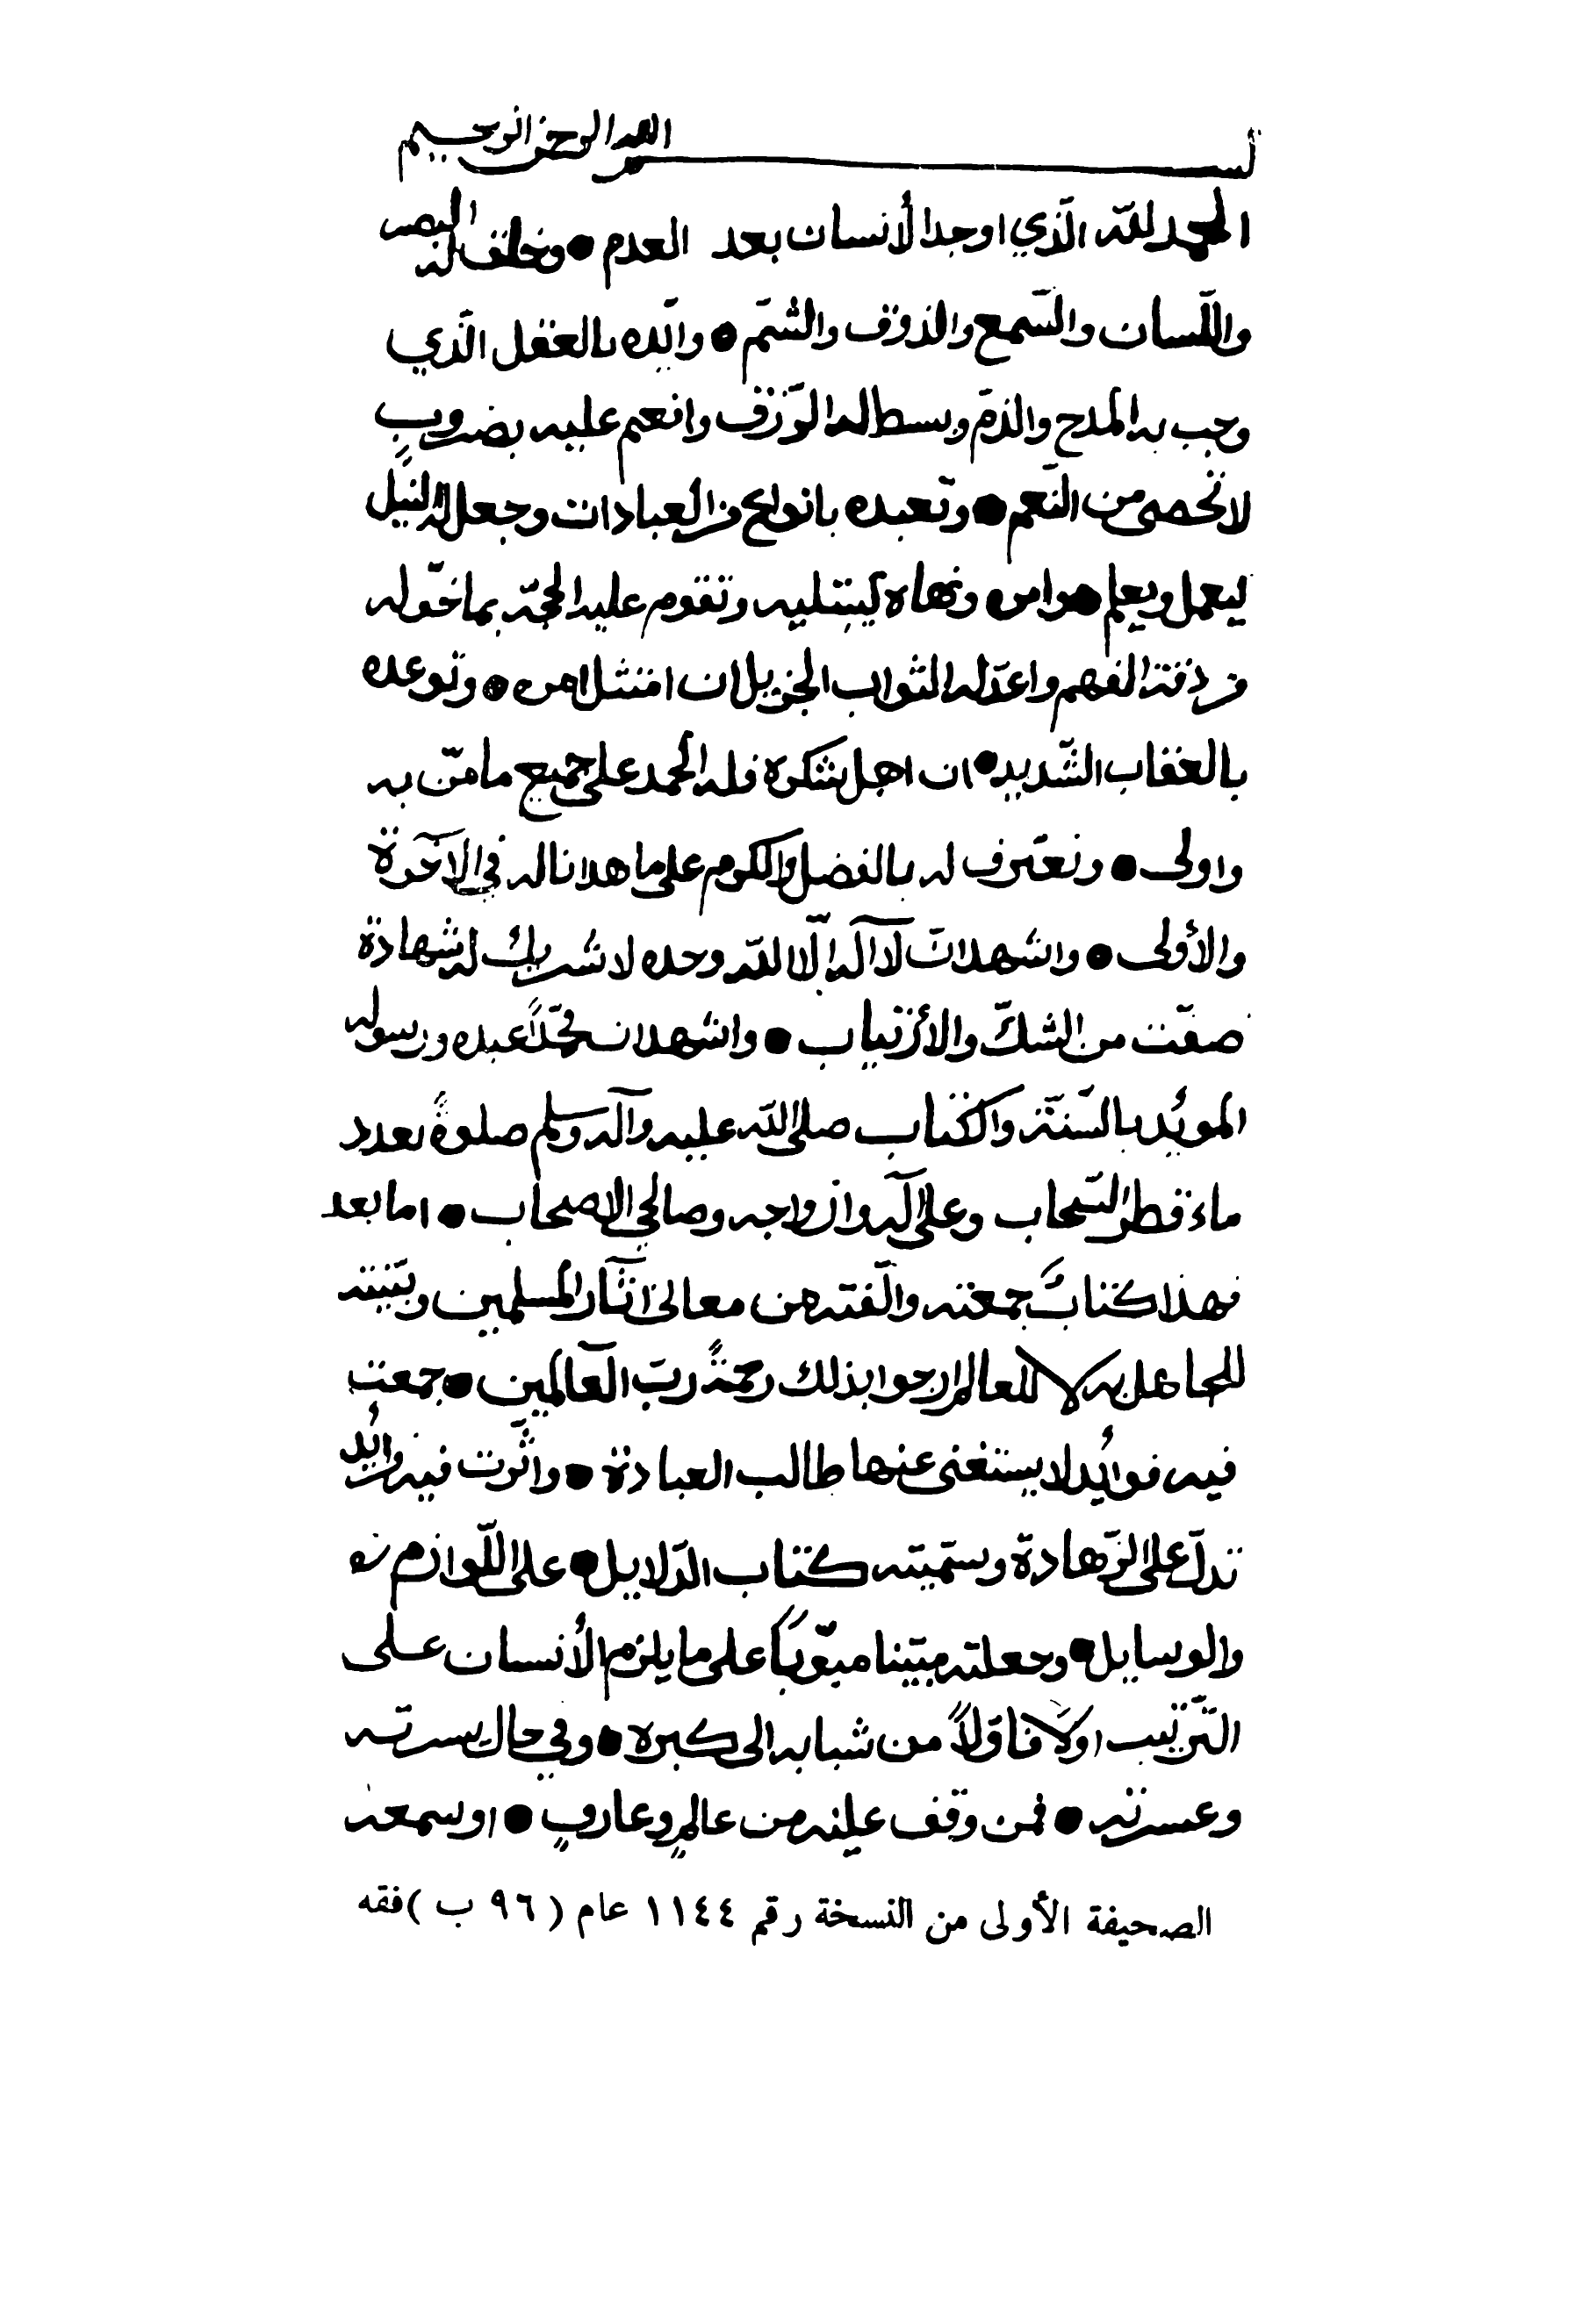 بسم الله الرحمن الرحيم
الحمد لله الذي اوجد الأنسان بعد العدم • وخلق له البصر
واللّسان والسّمع والذوق والشّم • وايّده بالعقل الّذي
وجب به المدح والذمّ وبسط له الرّزق وانعم عليه بضروبٍ
لا تحصى من النّعم • وتعبده بانواع من العبادات وجعل له النيل
ليعمل ويعلم هو امره ونهاه ليبتليه وتقوم عليه الحجّة بما خوّله
من دقة الفهم واعدّ له الثواب الجزيل ان امتثل امره • وتوعده
بالعقاب الشّديد • ان اهمل شكره فله الحمد على جميع ما منّ به
واولى • ونعترف له بالفضل والكرم على ما هدانا له في الآخرة
والأولى • واشهد ان لآ اله الّا الله وحده لا شريك له شهادة
صفّت من الشكّ والأرتياب • واشهد ان محمّداً عبده ورسوله
المويُد بالسّنّة والكتاب صلى الله عليه وآله وسلم صلوةً بعدد
ماء قطر السّحاب وعلى آله وازواجه وصالحي الاصحاب • اما بعد
فهذا كتابٌ جمعته والّفته من معاني آثار المسلمين وبيّنته
للجاهل به لا للعالم ارجوا بذلك رحمةً ربّ العالمين • جمعت
فيه فوايُد لا يستغنى عنها طالب العبادة • واثّرت فيه زوايُد
تدلّ على الزّهادة وسمّيته كتاب الدّلايل • على اللّوازم
والوسايل • وجعلته مبيّنا مبوّباً على ما يلزم الأنسان على
التّرتيب اولاً فاوّلاً من شبابه الى كبره • وفي حال يسرته
وعسرته • فمن وقف عليه من عالمٍ وعارفٍ • او سمعه
الصحيفة الأولى من النسخة رقم ١١٤٤ عام ( ٩٦ ب ) فقه